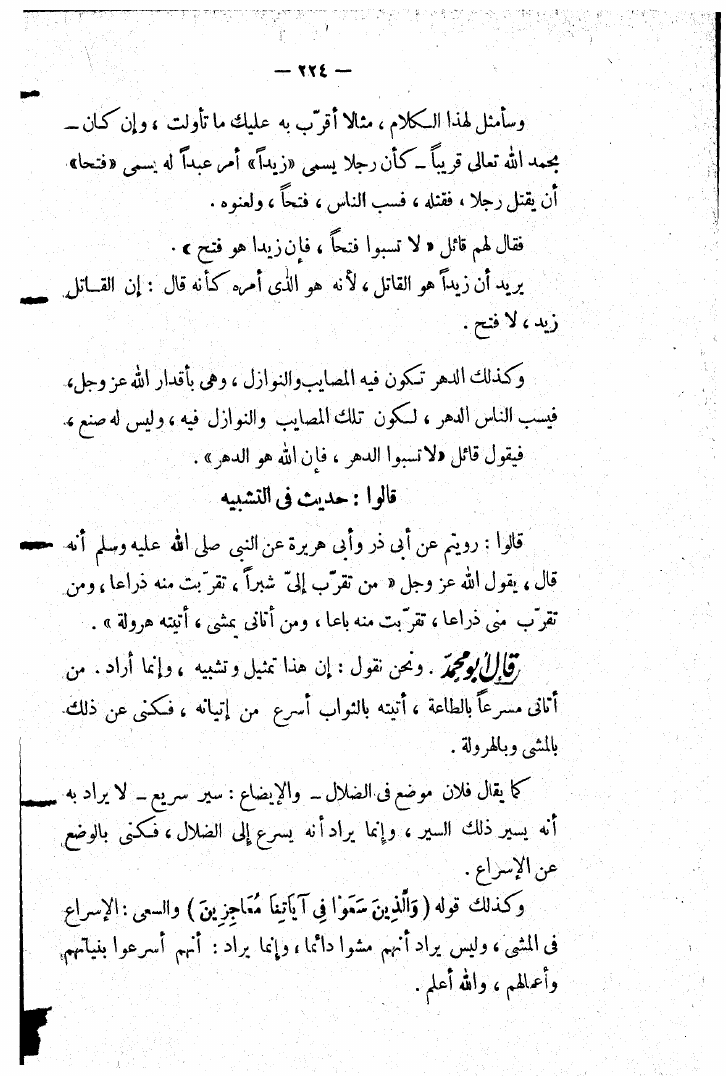 — ٢٢٤ —
وسأمثل لهذا الكلام ، مثالا أقرّب به عليك ما تأولت ، وإن كان —
بحمد الله تعالى قريباً — كأن رجلا يسمى «زيداً» أمر عبداً له يسمى «فتحا»
أن يقتل رجلا ، فقتله ، فسب الناس ، فتحاً ، ولعنوه .
فقال لهم قائل « لا تسبوا فتحاً ، فإن زيدا هو فتح » .
يريد أن زيداً هو القاتل ، لأنه هو الذى أمره كأنه قال : إن القاتل
زيد ، لا فتح .
وكذلك الدهر تكون فيه المصايب والنوازل ، وهى بأقدار الله عز وجل،
فيسب الناس الدهر ، لكون تلك المصايب والنوازل فيه ، وليس له صنع ،
فيقول قائل «لا تسبوا الدهر ، فإن الله هو الدهر» .
قالوا : حديث فى التشبيه
قالوا : رويتم عن أبى ذر وأبى هريرة عن النبى صلى الله عليه وسلم أنه
قال ، يقول الله عز وجل « من تقرّب إلىّ شبراً ، تقرّبت منه ذراعا ، ومن
تقرّب منى ذراعا ، تقرّبت منه باعا ، ومن أتانى يمشى ، أتيته هرولة » .
قال أبو محمد . ونحن نقول : إن هذا تمثيل وتشبيه ، وإنما أراد . من
أتانى مسرعاً بالطاعة ، أتيته بالثواب أسرع من إتيانه ، فكنى عن ذلك
بالمشى وبالهرولة .
كما يقال فلان موضع فى الضلال — والإيضاع : سير سريع — لا يراد به
أنه يسير ذلك السير ، وإنما يراد أنه يسرع إلى الضلال ، فكنى بالوضع
عن الإسراع .
وكذلك قوله ( وَالَّذِينَ سَعَوْا فِى آيَاتِنَا مُعَاجِزِينَ ) والسعى : الإسراع
فى المشى ، وليس يراد أنهم مشوا دائما ، وإنما يراد : أنهم أسرعوا بنياتهم
وأعمالهم ، والله أعلم .